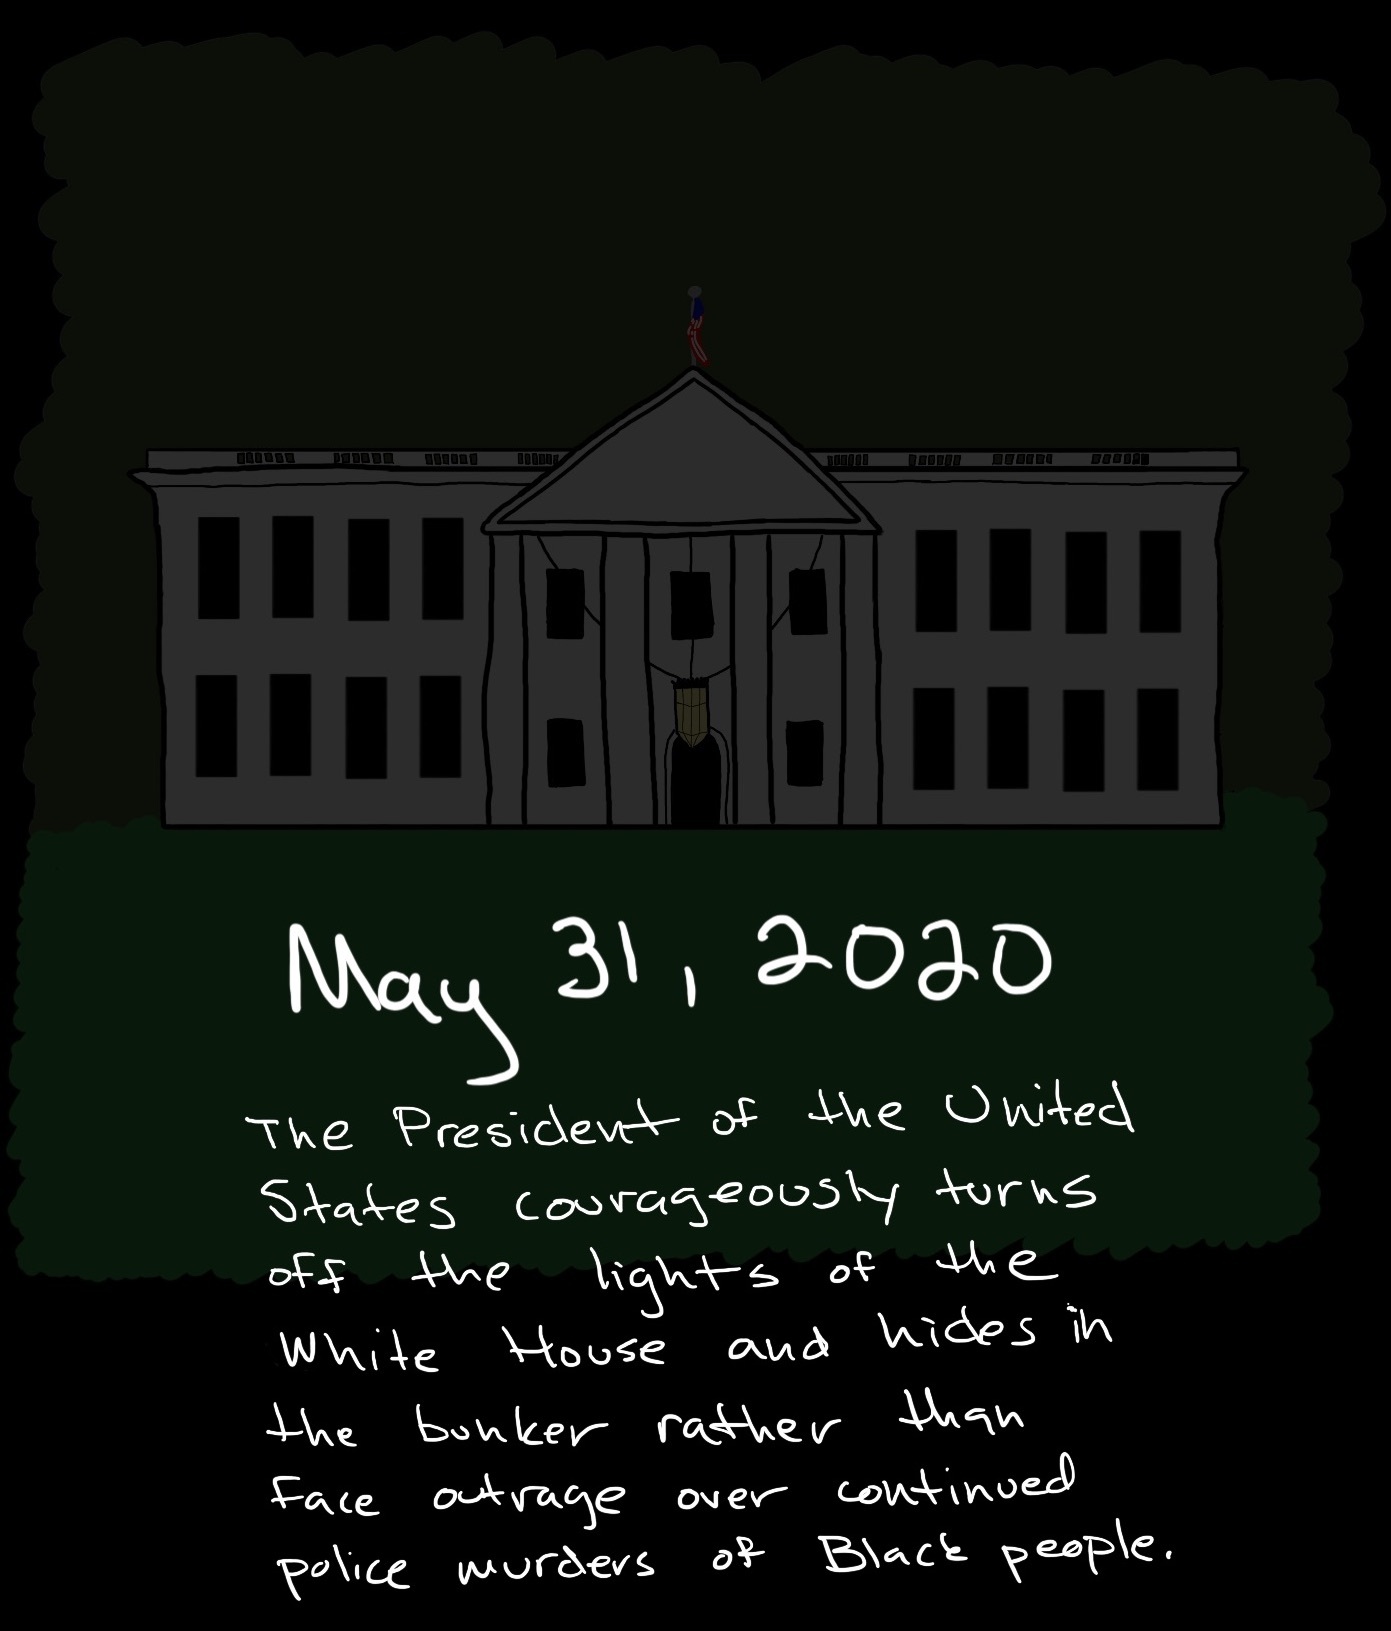 May 31, 2020
The President of the United
States courageously turns
off the lights of the
White House and hides in
the bunker rather than
face outrage over continued
police murders of Black people.